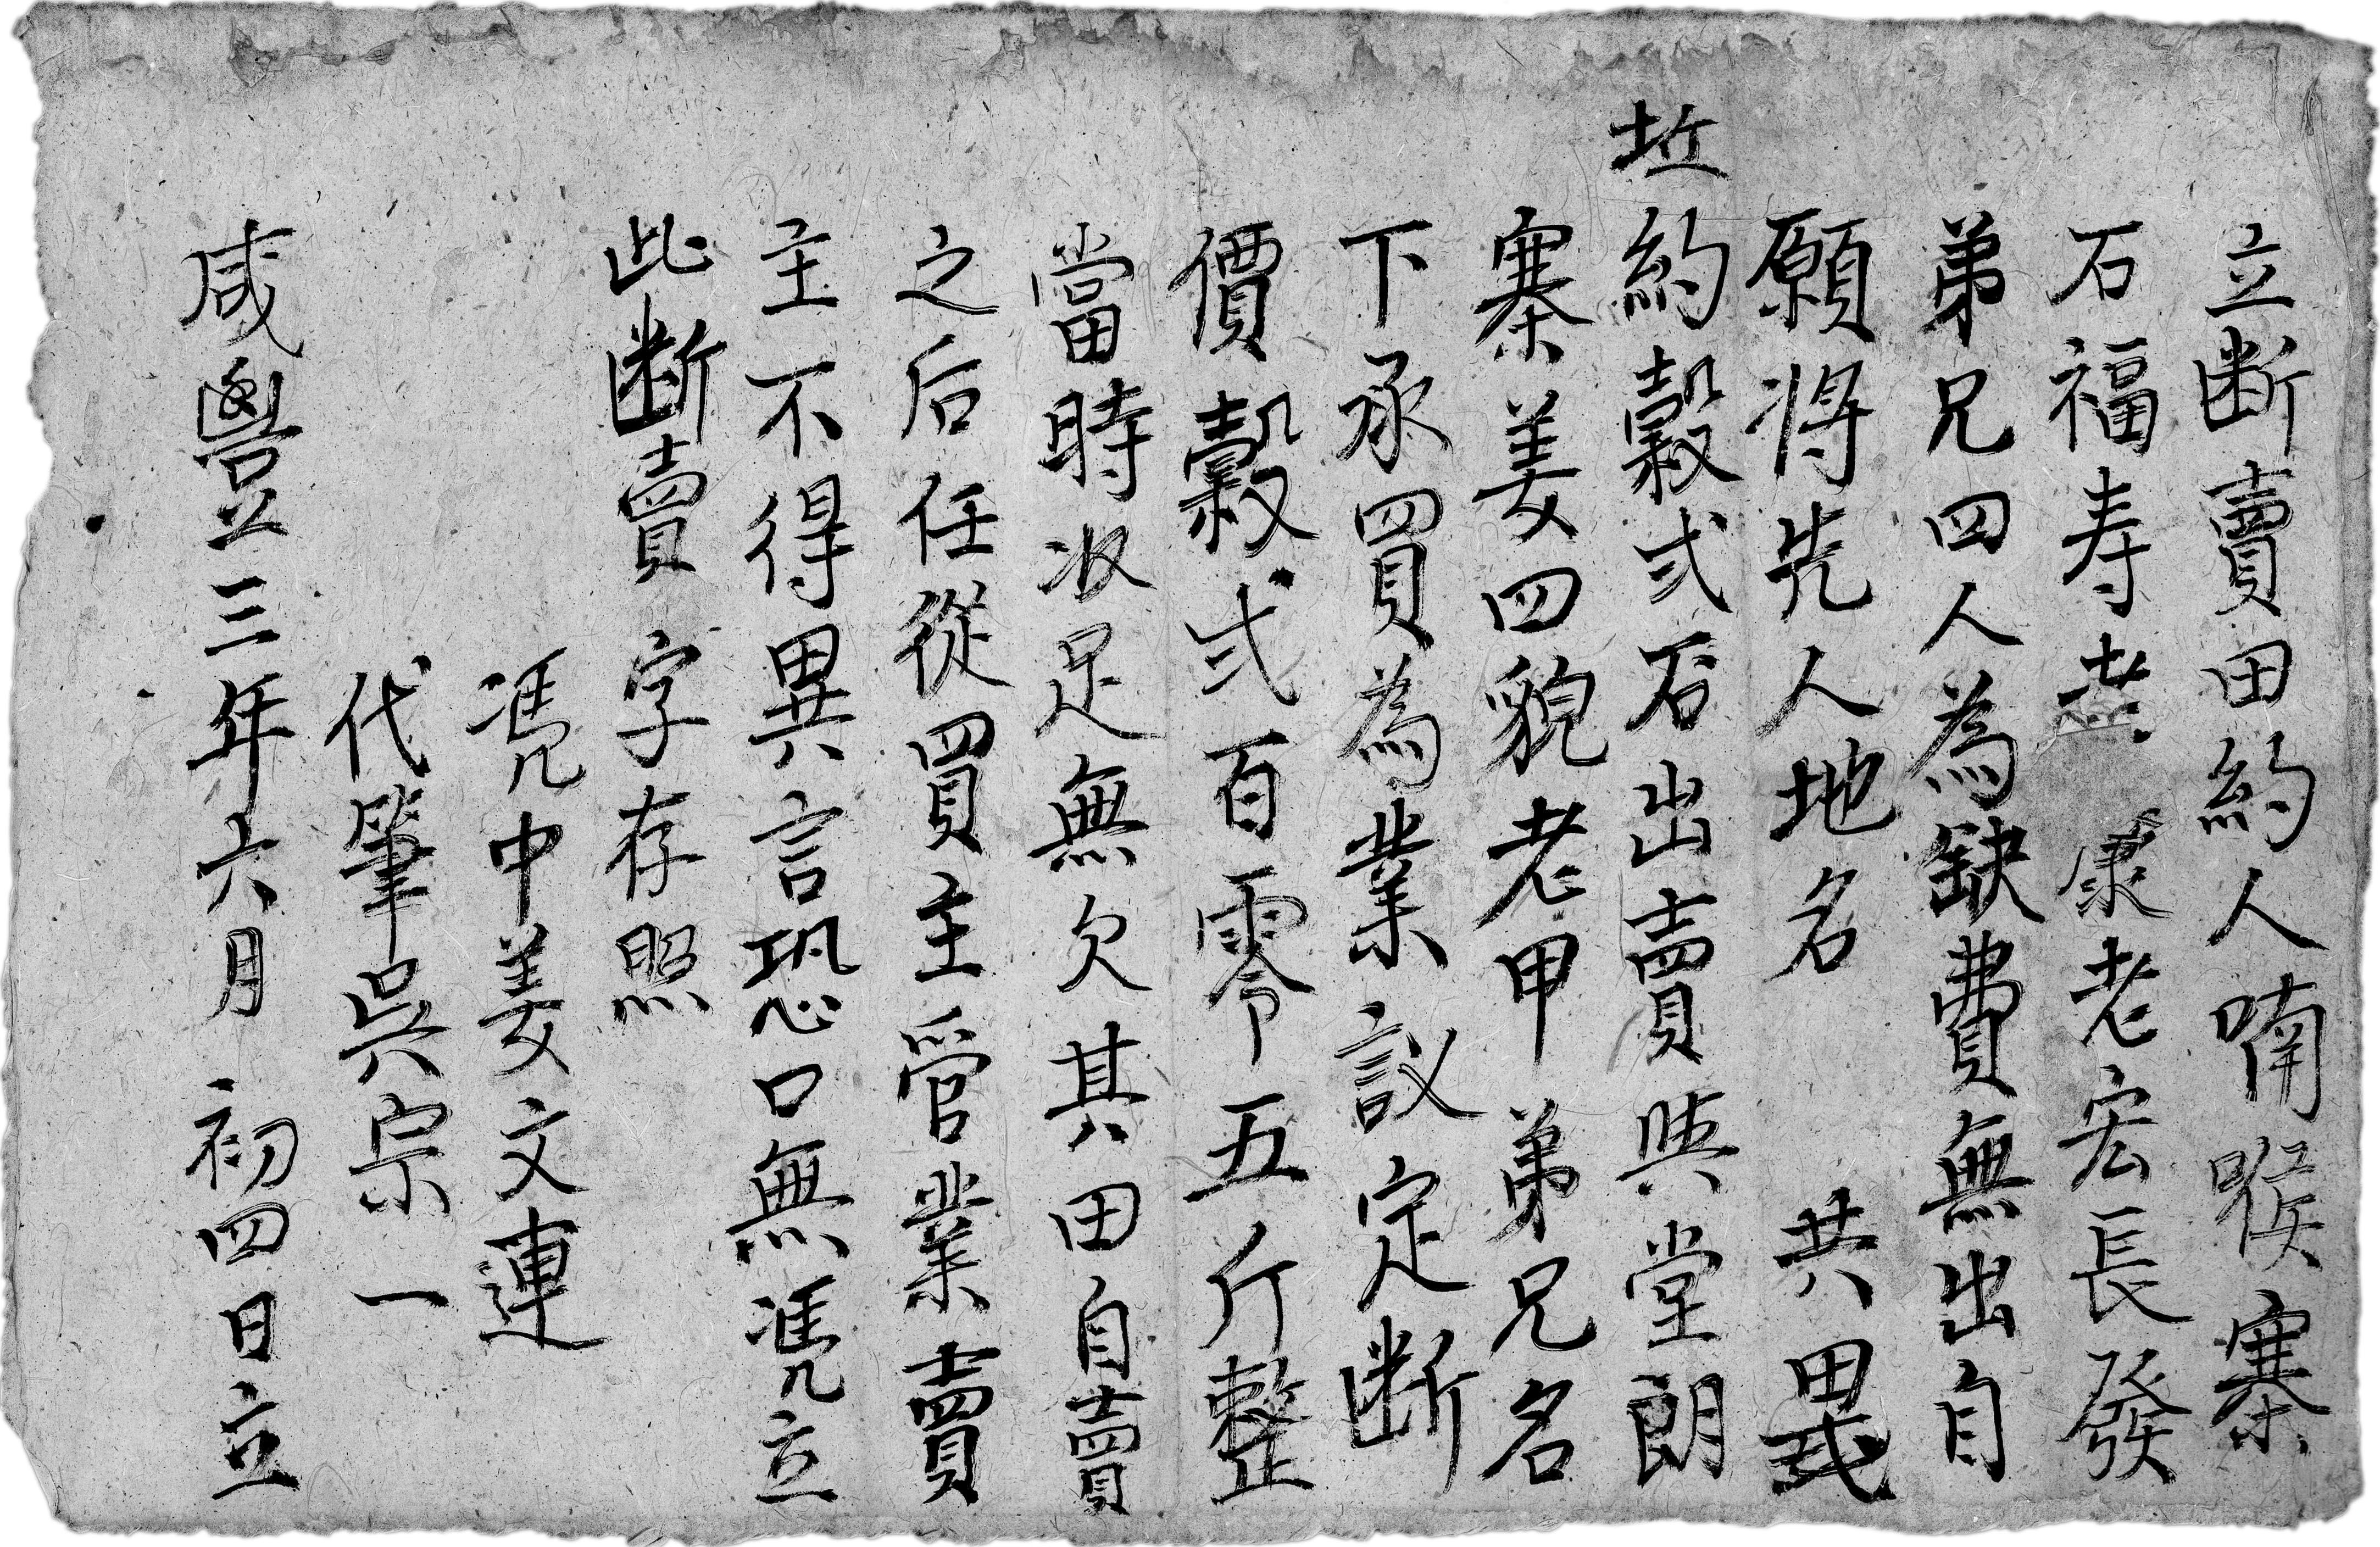 立断賣田約人喃喉寨
石福寿老 康老宏長發
弟兄四人為缺費無出自
願将先人地名 共田弍
坵約穀弍石出賣與堂朗
寨姜四貌老甲弟兄名
下承買為業議定断
價穀弍百零五斤整
當時收足無欠其田自賣
之后任從買主管業賣
主不得異言恐口無馮立
此断賣字存照
馮中姜文連
代筆吳宗一
咸豐三年六月初四日立